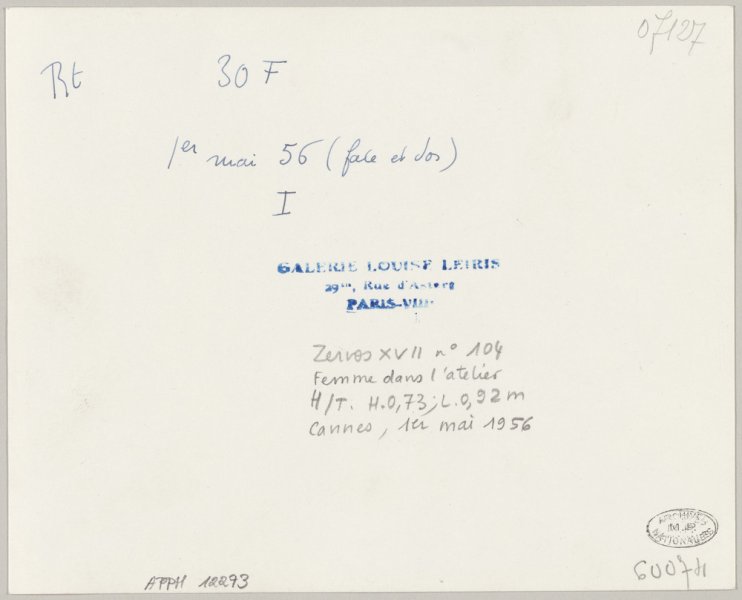 07127
Rt 30 F
1er mai 56 (face et dos)
I
GALERIE LOUISE LEIRIS
29bis, Rue d'Astorg
PARIS-VIIIe
Zervos XVII n° 104
Femme dans l'atelier
H/T. H.0,73; L.0,92 m
Cannes, 1er mai 1956
ARCHIVES
M.P.
NATIONALES
APPH 12293